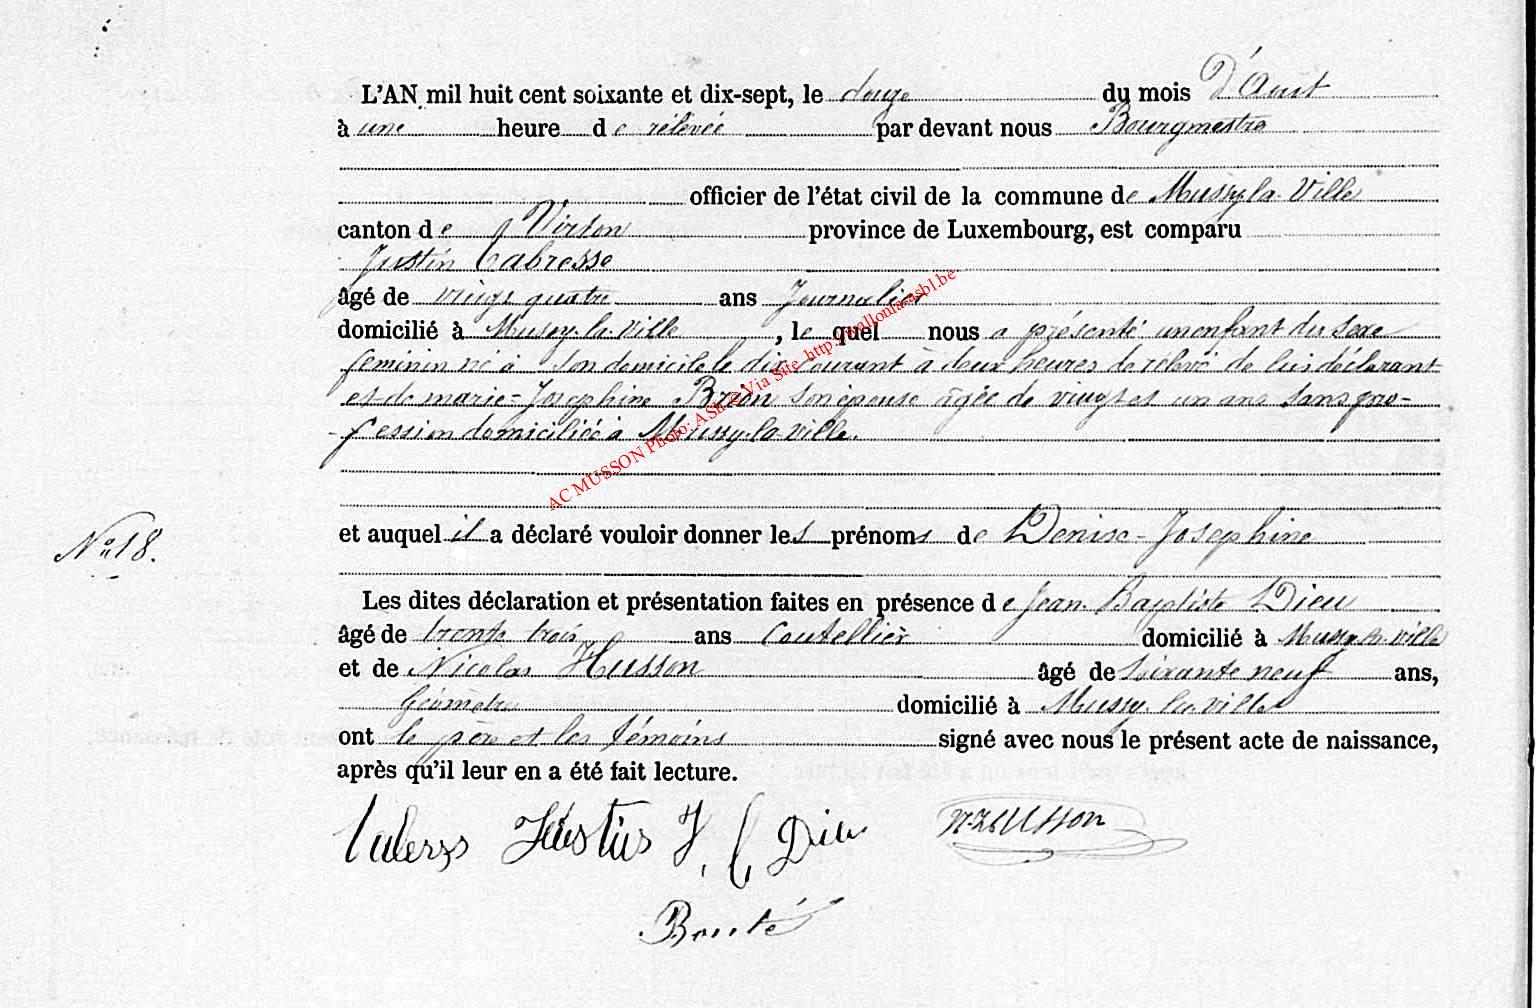 L'AN mil huit cent soixante et dix-sept, le douze du mois D'Aout
à une heure de rélevée par devant nous Bourgmestre
officier de l'état civil de la commune de Mussy la Ville
canton de Virton province de Luxembourg, est comparu
Justin Cabresse
âgé de vingt quatre ans Journalier
domicilié à Mussy-la-ville, le quel nous a présenté un enfant du sexe
feminin né à son domicile le dix courant à deux heures de relevé de lui déclarant
et de marie-Josephine Brion son épouse âgée de vingt et un ans sans pro-
-fession domiciliée à Mussy-la-ville.
AC MUSSON Photo: ASh © Via Site http://wallonia-asbl.be
No 18.
et auquel il a déclaré vouloir donner les prénoms de Denise-Josephine
Les dites déclaration et présentation faites en présence de Jean Baptiste Dieu
âgé de trente trois ans Coutellier domicilié à Mussy-la-ville
et de Nicolas Husson âgé de soixante neuf ans,
Géomètre domicilié à Mussy-la-ville
ont le père et les témoins signé avec nous le présent acte de naissance,
après qu'il leur en a été fait lecture.
Justin J. B. Dieu N. Husson
Bouté